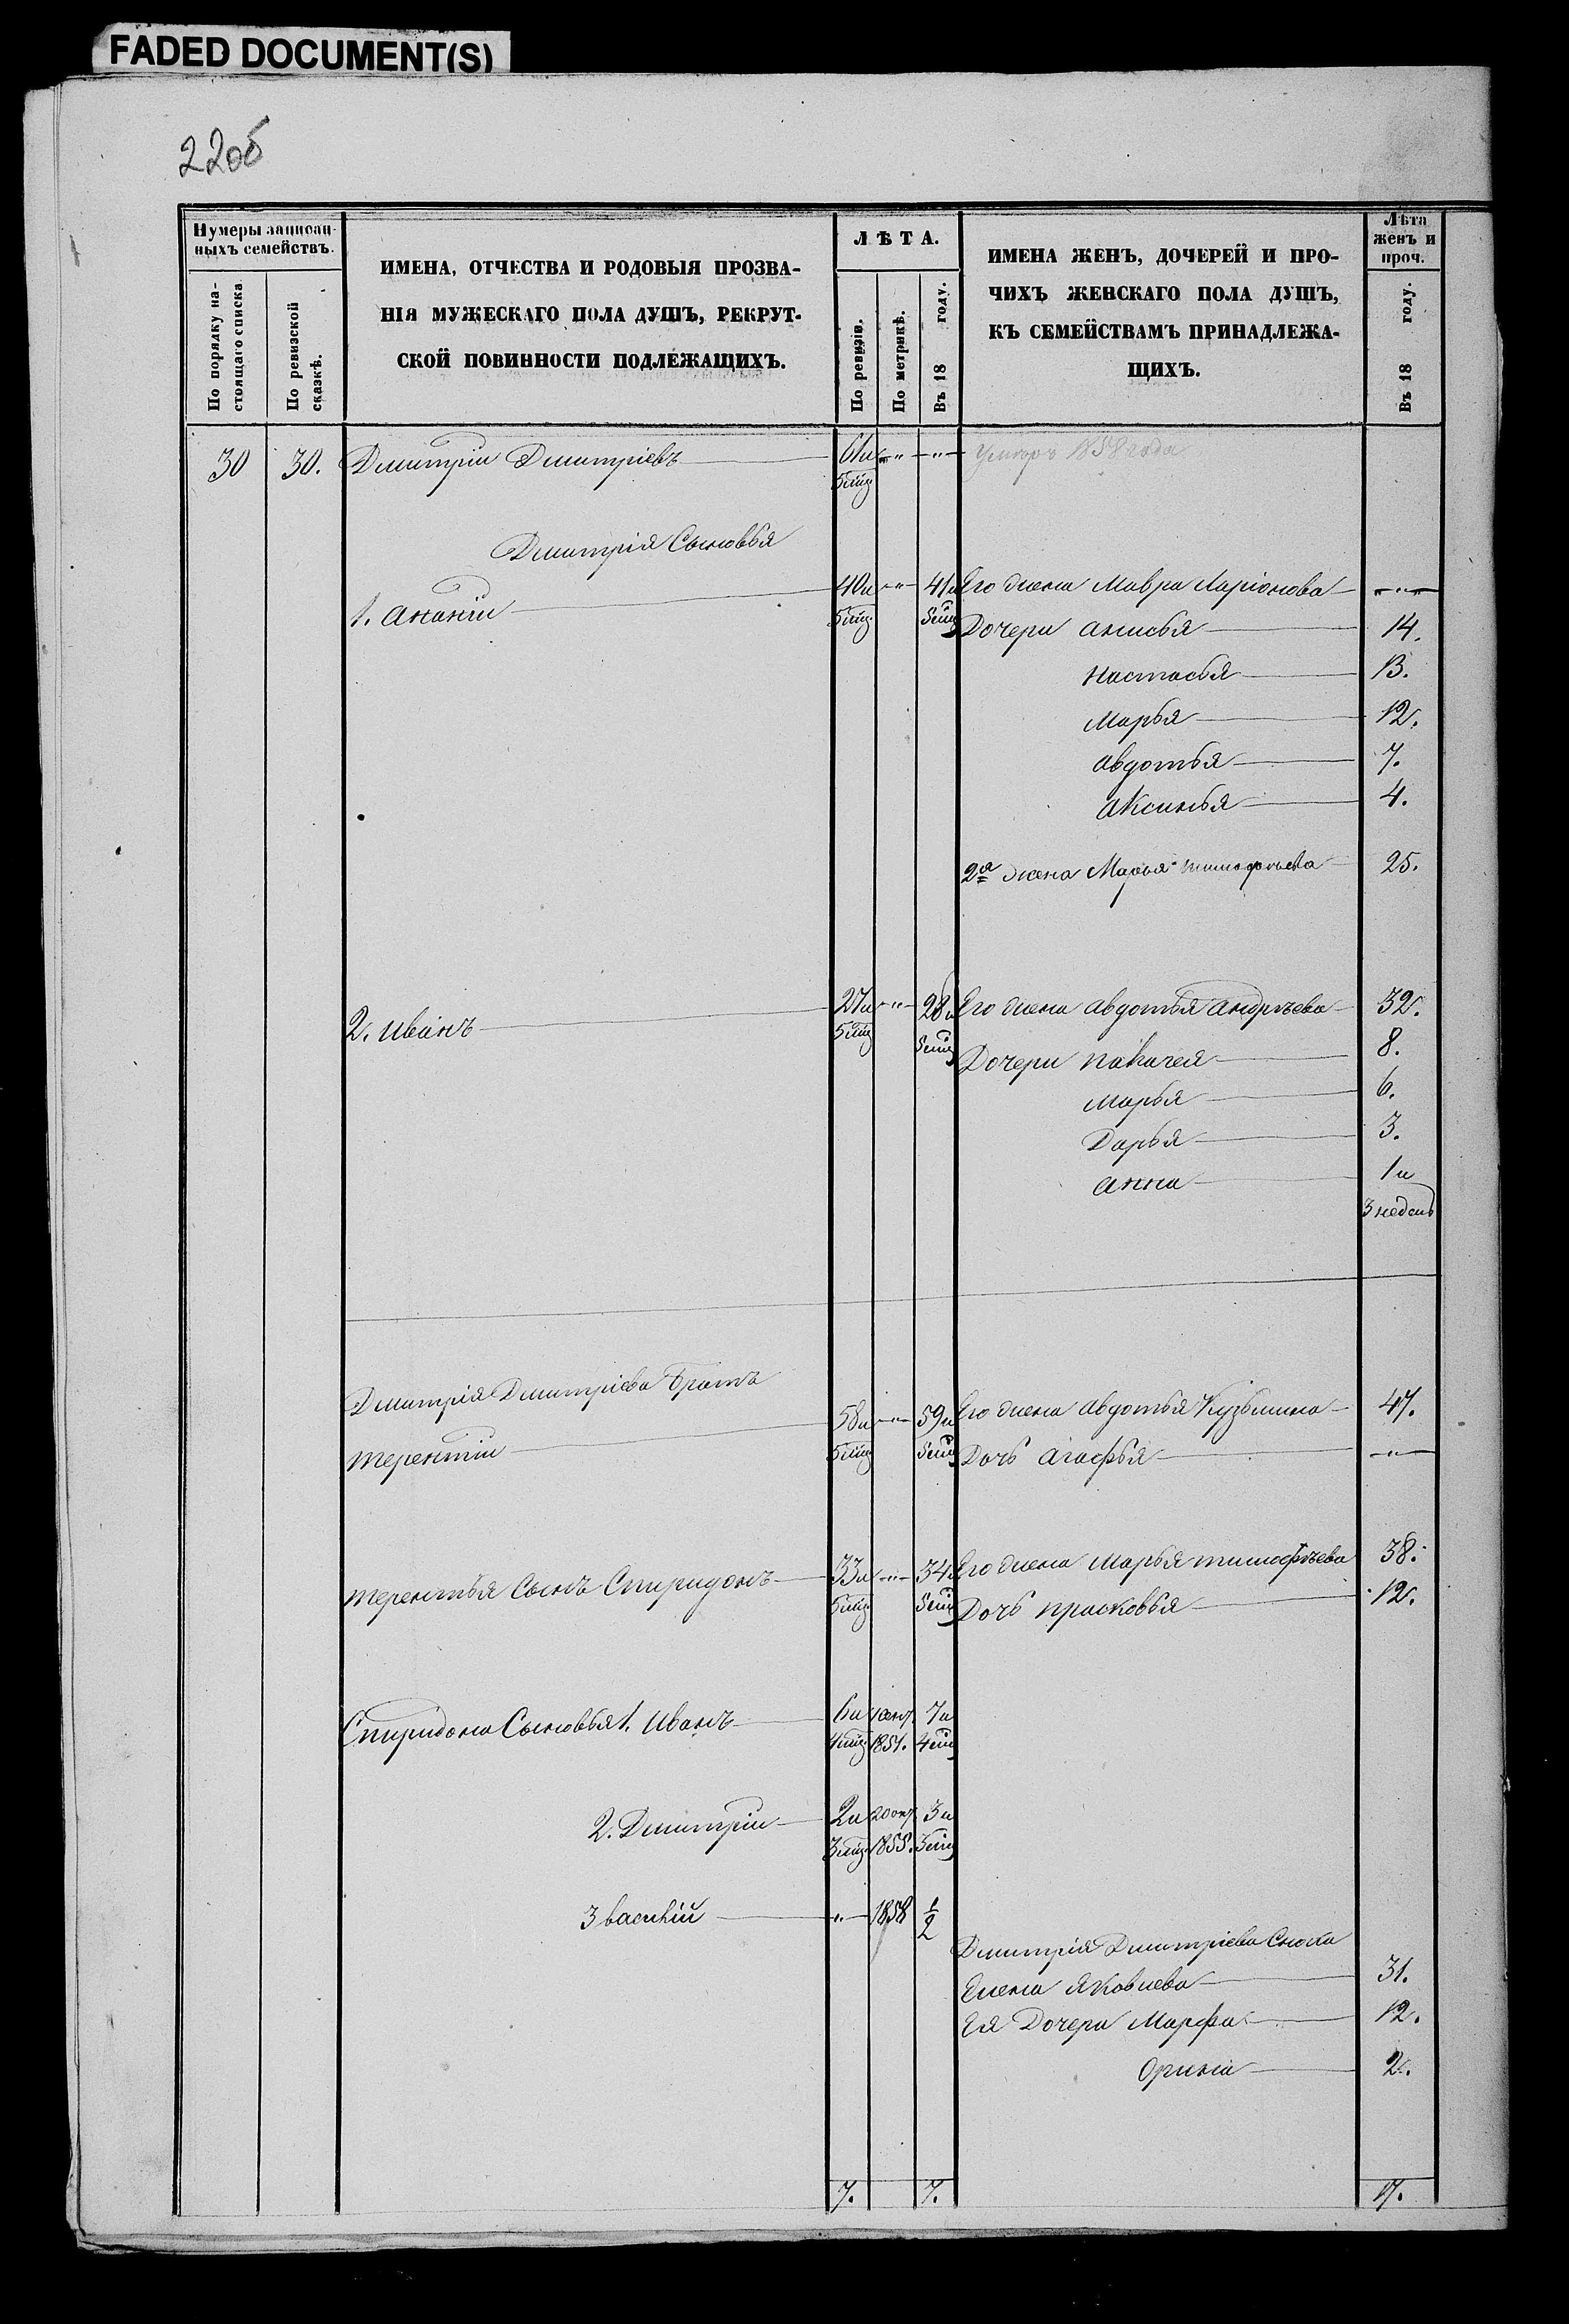 FADED DOCUMENT(S)
22об
Нумеры записан-
ныхъ семействъ.
По порядку на-
стоящаго списка.
По ревизской
сказкѣ.
ИМЕНА, ОТЧЕСТВА И РОДОВЫЯ ПРОЗВА-
НІЯ МУЖЕСКАГО ПОЛА ДУШЪ, РЕКРУТ-
СКОЙ ПОВИННОСТИ ПОДЛЕЖАЩИХЪ.
ЛѢТА.
По ревизіи.
По метрикѣ.
Въ 18 году.
ИМЕНА ЖЕНЪ, ДОЧЕРЕЙ И ПРО-
ЧИХЪ ЖЕНСКАГО ПОЛА ДУШЪ,
КЪ СЕМЕЙСТВАМЪ ПРИНАДЛЕЖА-
ЩИХЪ.
Лѣта
женъ и
проч.
Въ 18 году.
30 30. Дмитріи Дмитріевъ 61 и — " — " — Умеръ 1858 года
5 мѣц
Дмитрія Сыновья
1. Ананіи 40 и — " — 41 и Его жена Мавра Ларіонова — " —
5 мѣц 5 мѣц Дочери Анисья 14.
Настасья 13.
Марья 12.
Авдотья 7.
Аксинья 4.
2я жена Марья Тимофѣева 25.
2. Иванъ 27 и — " — 28 и Его жена Авдотья Андрѣева 32.
5 мѣц 5 мѣц Дочери 8.
Марья 6.
Дарья 3.
Анна 1 и
3 недель
Дмитрія Дмитріева Братъ
Терентіи 58 и — " — 59 и Его жена Авдотья Кузьмина 47.
5 мѣц 5 мѣц Дочь Агафья — " —
Терентья Сынъ Спиридонъ 33 и — " — 34 Его жена Марья Тимофѣева 38.
5 мѣц 5 мѣц Дочь Прасковья 12.
Спиридона Сыновья 1. Иванъ 6 и 7 и
4 мѣц 1851. 4 мѣц
2. Дмитріи 2 и 20 окт. 3 и
3 мѣц 1855. 3 мѣц
3 Василій — " — 1858 1/2
Дмитрія Дмитріева Сноха
Елена Яковлева 31.
Ея Дочери Марфа 12.
Орина 2.
7. 7. 17.